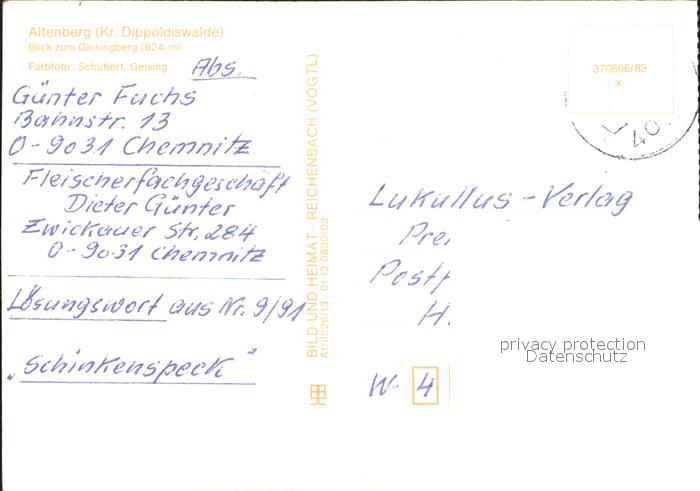 Altenberg (Kr. Dippoldiswalde)
Blick zum Geisingberg (824 m)
Farbfoto: Schubert, Geising
Abs.
Günter Fuchs
Bahnstr. 13
O-9031 Chemnitz
Fleischerfachgeschäft
Dieter Günter
Zwickauer Str. 284
O-9031 Chemnitz
Lösungswort aus Nr. 9/91
„Schinkenspeck"
BILD UND HEIMAT · REICHENBACH (VOGTL)
A1/III/26/13 · 01 12 0830/03
370866/89
x
40
Lukullus-Verlag
Prei
Postf
H.
W- 4
privacy protection
Datenschutz